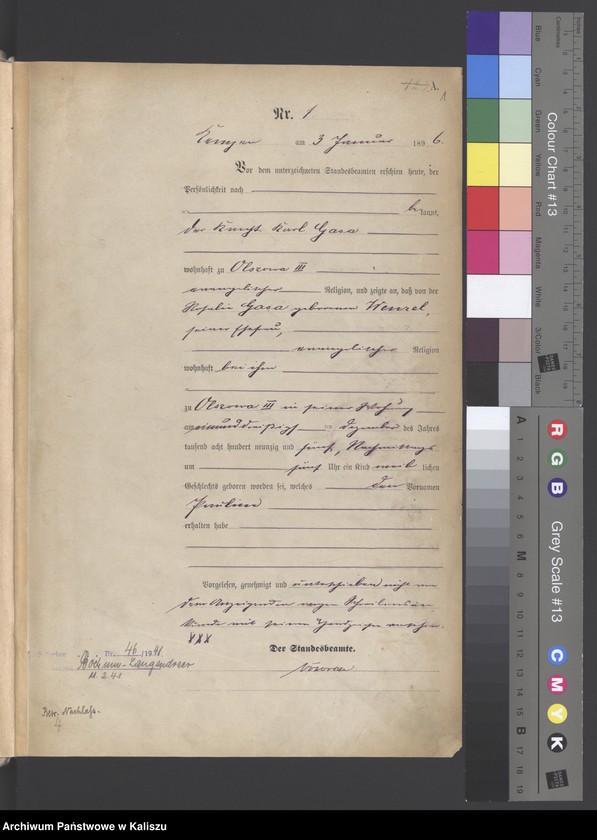 A.
1
Nr. 1
Kempen am 3 Januar 1896.
Vor dem unterzeichneten Standesbeamten erschien heute, der
Persönlichkeit nach
be kannt,
der Knecht Karl Gasa
wohnhaft zu Olszowa III
evangelischer Religion, und zeigte an, daß von der
Rosalie Gasa geborenen Wenzel,
seiner Ehefrau,
evangelischer Religion
wohnhaft bei ihm
zu Olszowa III in seiner Wohnung
am einunddreißigsten Dezember des Jahres
tausend acht hundert neunzig und fünf, Nachmittags
um fünf Uhr ein Kind weib lichen
Geschlechts geboren worden sei, welches den Vornamen
Pauline
erhalten habe
Vorgelesen, genehmigt und unterschrieben nicht von
dem Anzeigenden wegen Schreibens
kunde mit seinem Handzeichen versehen.
XXX
Der Standesbeamte.
Nr. 46/1941
Bochum-Langendreer
11.2.41
Betr. Nachlaß-
4
Colour Chart #13
Centimetres
Blue
Cyan
Green
Yellow
Red
Magenta
White
3/Color
Black
Grey Scale #13
R
G
B
C
M
Y
K
A
1
2
3
4
5
6
M
8
9
10
11
12
13
14
15
B
17
18
19
Archiwum Państwowe w Kaliszu